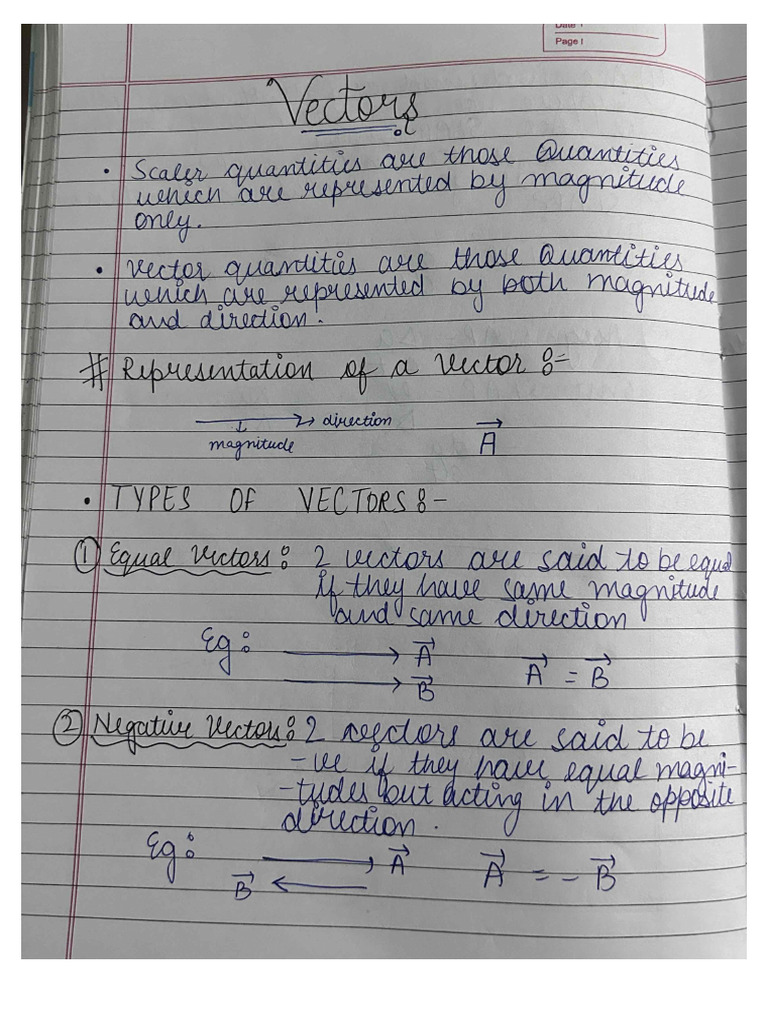 Date
Page
Vectors
• Scaler quantities are those Quantities
which are represented by magnitude
only.
• Vector quantities are those Quantities
which are represented by both magnitude
and direction.
# Representation of a vector :-
→ direction
magnitude
A
• TYPES OF VECTORS :-
① Equal Vectors : 2 vectors are said to be equal
if they have same magnitude
and same direction
Eg :
A
B
A = B
② Negative Vectors : 2 vectors are said to be
-ve if they have equal magni-
-tudes but acting in the opposite
direction.
Eg :
A
B
A = - B